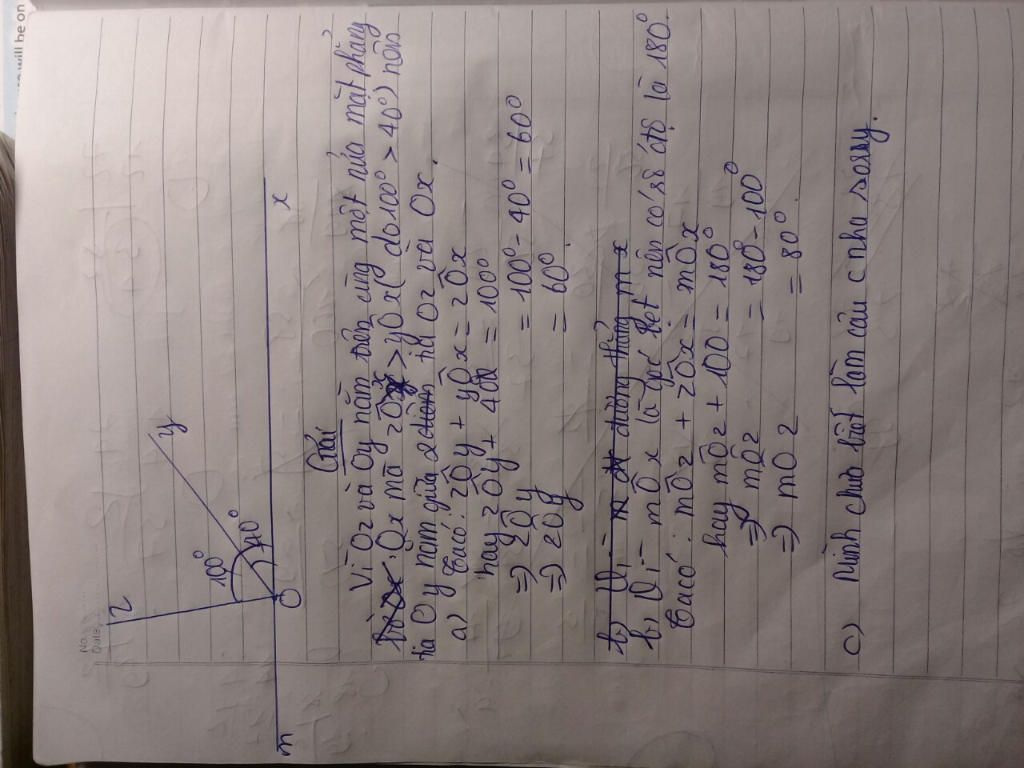 z
y
100°
40°
m
O
x
Giải
Vì Oz và Oy nằm trên cùng một nửa mặt phẳng
Ox mà zÔx > yÔx (do 100° > 40°) nên
tia Oy nằm giữa 2 tia Oz và Ox.
a) Ta có: zÔy + yÔx = zÔx
hay zÔy + 40 = 100°
=> zÔy = 100° - 40° = 60°
=> zÔy = 60°.
b) Vì m đường thẳng mx
b) Vì mÔx là góc bẹt nên có số độ là 180°.
Ta có: mÔz + zÔx = mÔx
hay mÔz + 100 = 180°
=> mÔz = 180° - 100°
=> mOz = 80°.
c) Mình chưa biết làm câu c nha sorry.